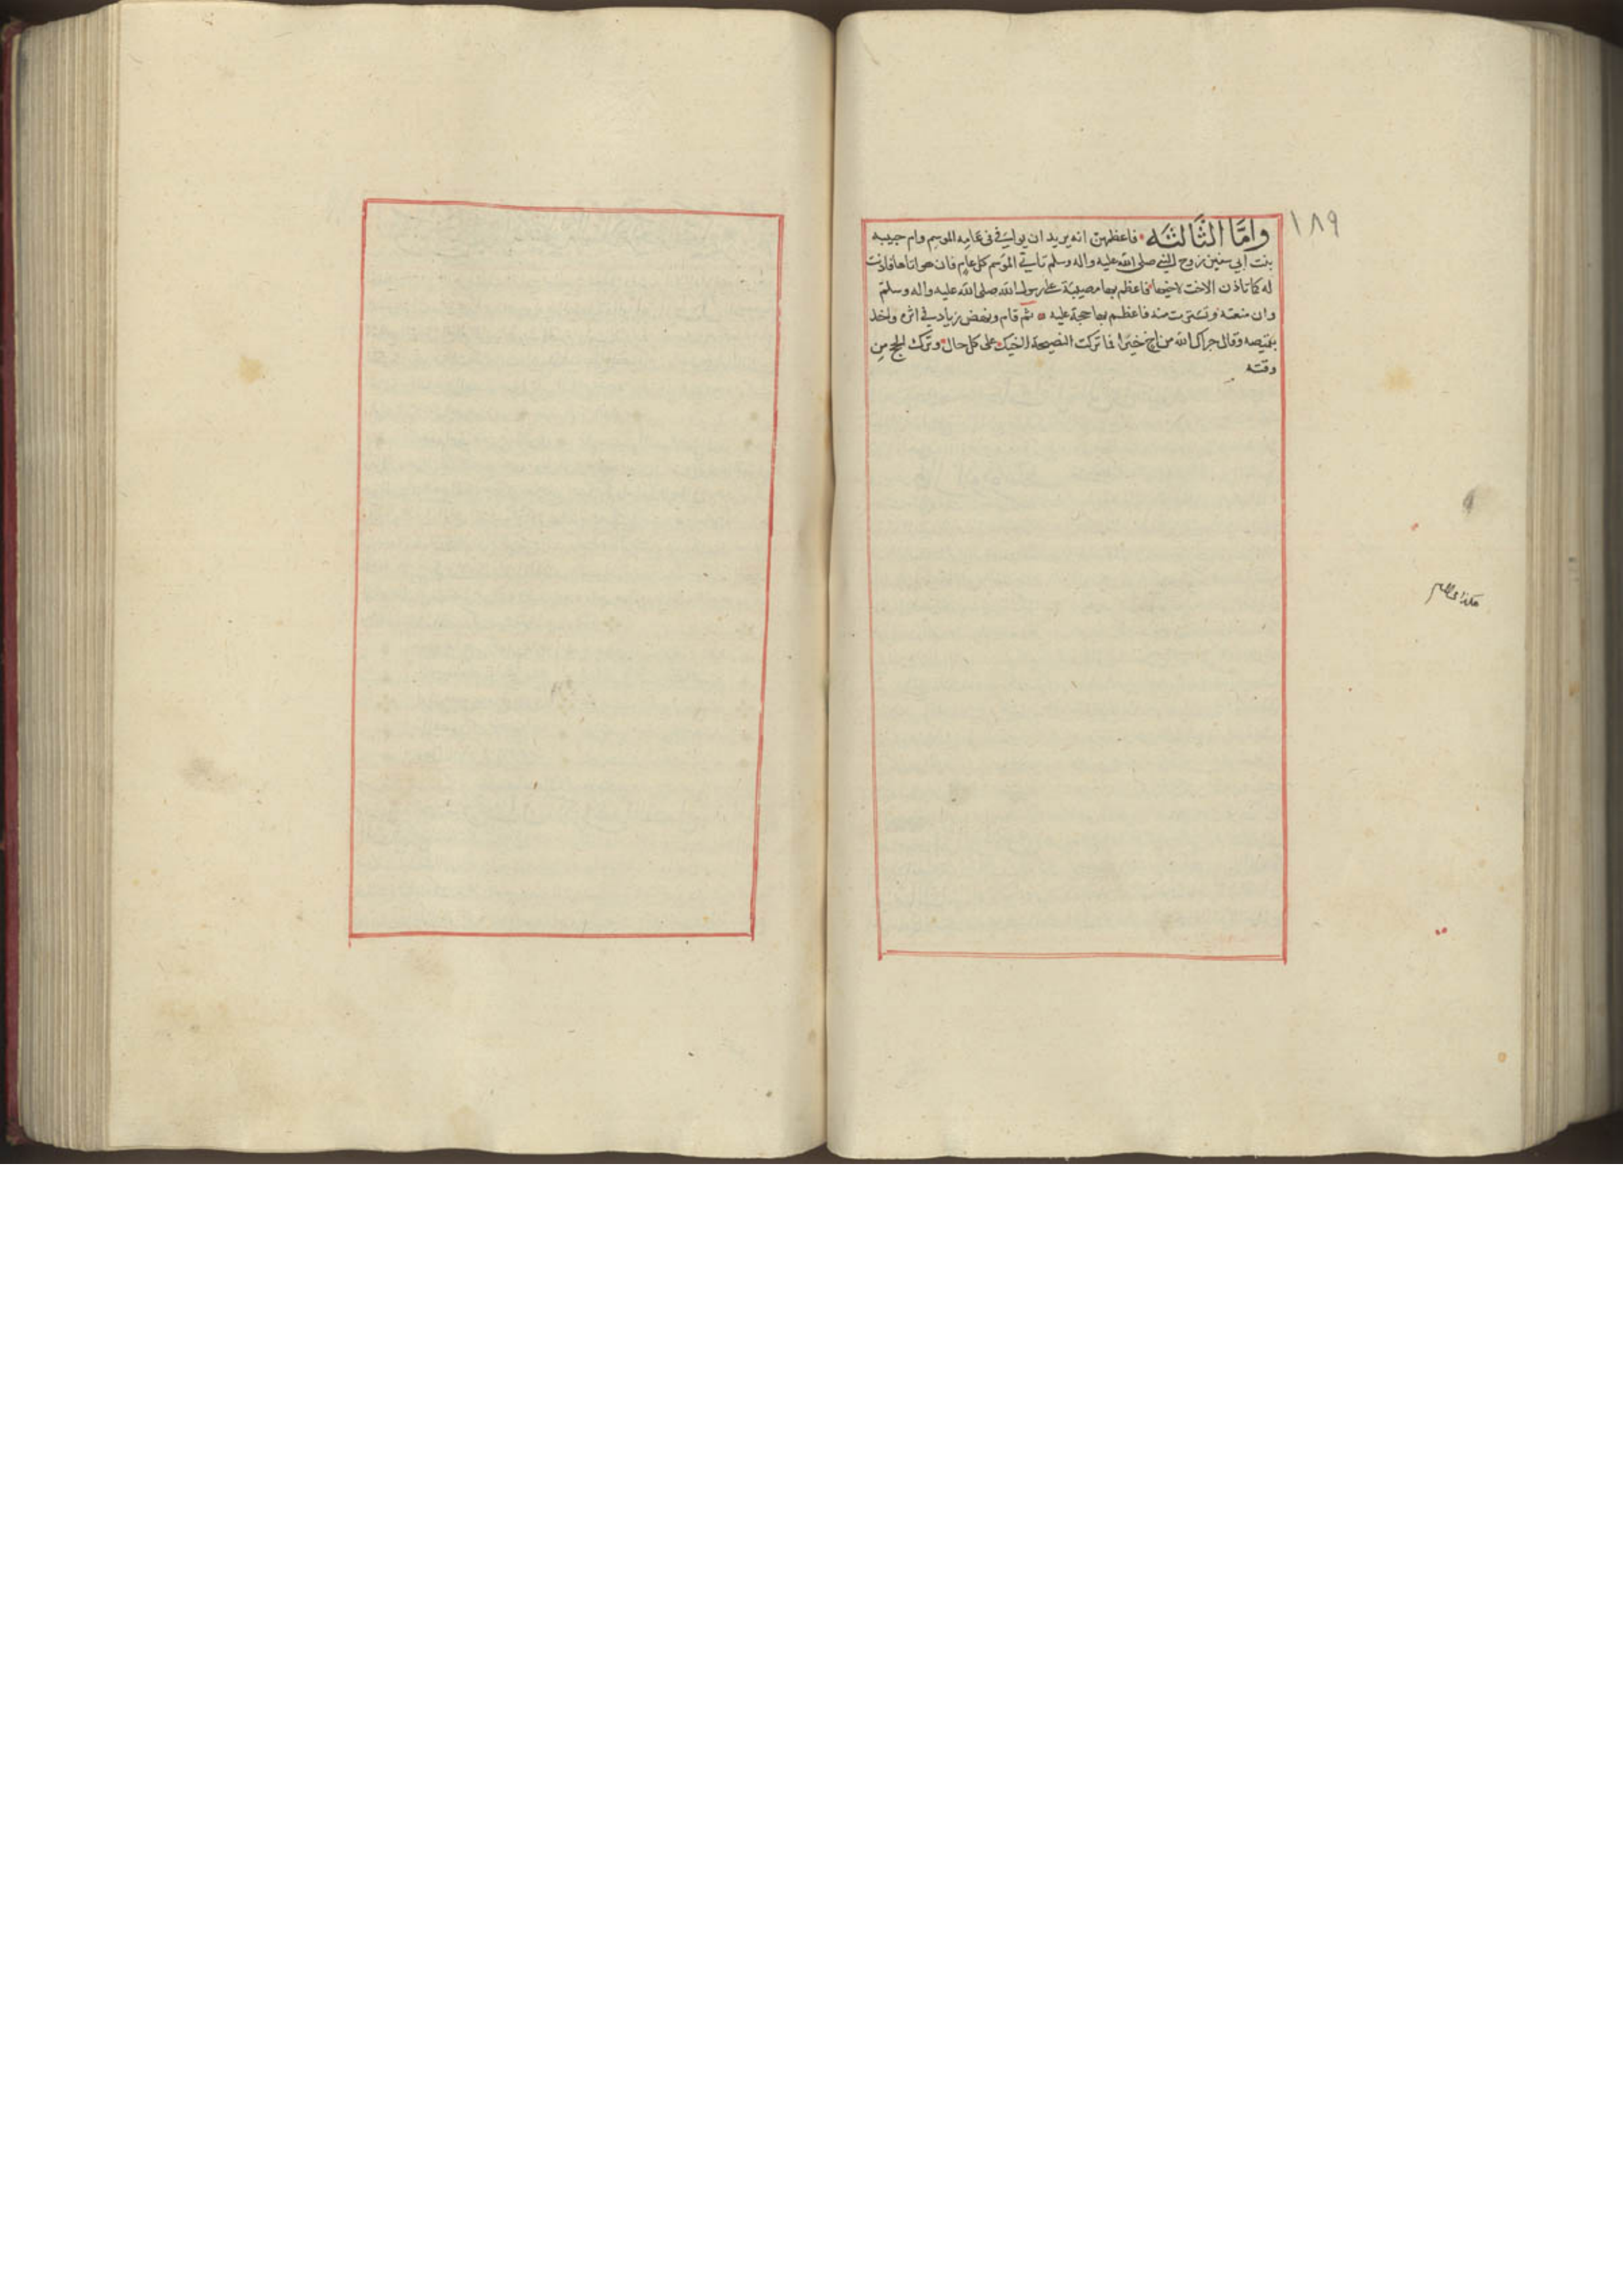 ١٨٩
وامَّا الثَّالثَه فاعظمهن انه يريد ان يوافي في عامِه الموسِم وام حبيبه
بنت ابي سفين زوج النبي صلى الله عليه واله وسلم تاتي الموسم كل عام فان هو اتاها فاذنت
له كما تاذن الاخت لاخيها فاعظم بها مصيبة على رسول الله صلى الله عليه واله وسلم
وان منعته وتسترت منه فاعظم بها حجة عليه ثم قام ونهض زياد في اثره واخذ
بقميصه وقال جزاك الله من اخ خيرا فما تركت النصيحة لاخيك على كل حال وترك الحج من
وقته